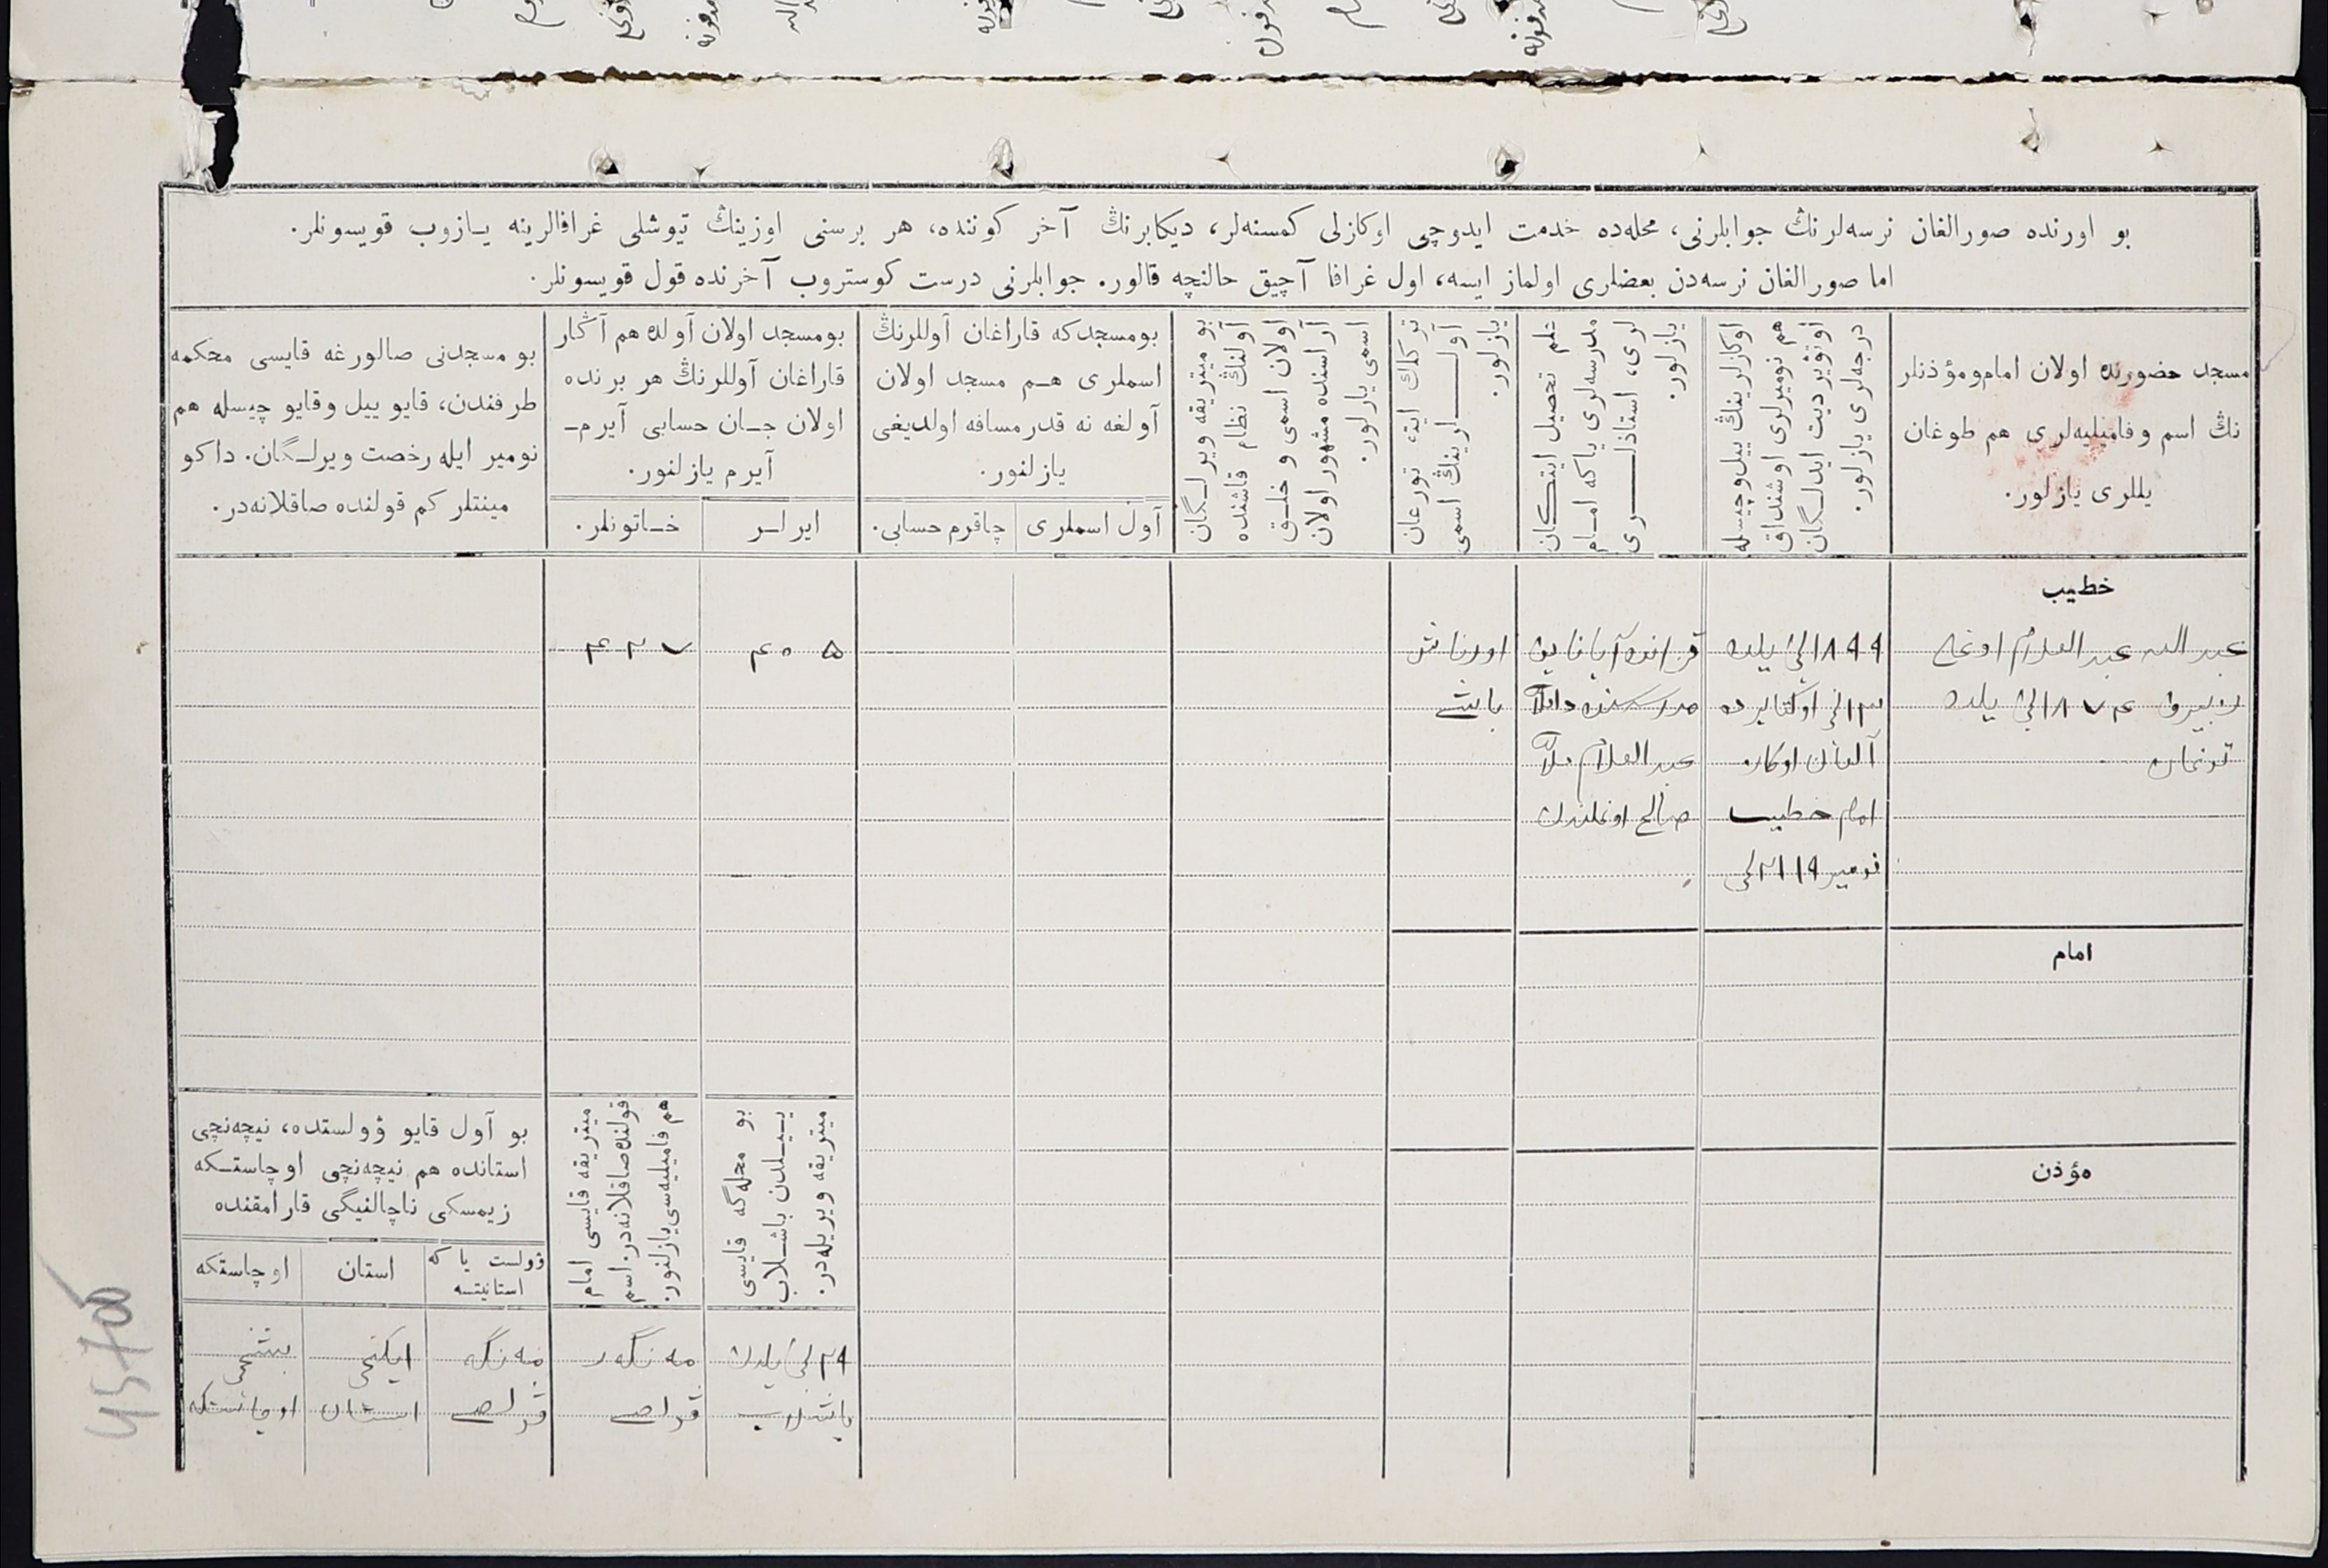 بو اورنده صورالغان نرسه‌لرنڭ جوابلرنی، محله‌ده خدمت ایدوچی اوکازلی کمسنه‌لر، دیکابرنڭ آخر کوننده، هر برسنی اوزینڭ تیوشلی غرافالرینه یازوب قویسونلر.
اما صورالغان نرسه‌دن بعضلری اولماز ایسه، اول غرافا آچیق حالنچه قالور. جوابلرنی درست کوستروب آخرنده قول قویسونلر.
مسجد حضورنده اولان امام‌و‌مؤذنلر
نڭ اسم وفامیلیه‌لری هم طوغان
یللری یازلور.
اوکازلرینڭ ییل‌و‌چیسله
هم نومیرلری اوشنداق
اوتوثیردیت ایدلگان
درجه‌لری یازلور.
علم تحصیل ایتکان
مدرسه‌لری یا که امام
لری، استاذلری
یازلور.
ترکلک ایته تورغان
آوللرینڭ اسمی
یازلور.
بو میتریقه ویرلگان
آولنڭ نظام قاشنده
اولان اسمی و خلق
آراسنده مشهور اولان
اسمی یازلور.
بومسجدکه قاراغان آوللرنڭ
اسملری هم مسجد اولان
آولغه نه قدر مسافه اولدیغی
یازلنور.
آول اسملری
چاقرم حسابی.
بومسجد اولان آولده هم آڭار
قاراغان آوللرنڭ هر برنده
اولان جان حسابی آیرم-
آیرم یازلنور.
ایرلر
خاتونلر.
بو مسجدنی صالورغه قایسی محکمه
طرفندن، قایو ییل وقایو چیسله هم
نومیر ایله رخصت ویرلگان. داکو
مینتلر کم قولنده صاقلانه‌در.
خطیب
عبد الله عبد العلام اوغلی
۱۸۷۴ لنچی یلده
توغان
۱۸۹۹ لنچی یلده
۱۳ نچی اوکتابرده
آلغان اوکاز
امام خطیب
نومیر ۲۱۱۹ نچی
قزانده آپانایف
مدرسه‌سنده داملا
عبد العلام ملا
صالح اوغلندن
اورناش
باشی
۴۰۵
۴۳۷
امام
مؤذن
بو محله‌گه قایسی
ییلدن باشلاب
میتریقه ویریله‌در.
میتریقه قایسی امام
قولنده‌صاقلانه‌در. اسم
هم فامیلیه‌سی یازلنور.
بو آول قایو ۋولستده، نیچه‌نچی
استانده هم نیچه‌نچی اوچاستکه
زیمسکی ناچالنیگی قارامقنده
ۋولست یا که
استانیتسه
استان
اوچاستکه
۲۹ نچی یلدن
باشلاب
مه نگه ر
قزلصی
مه نگه ر
قزلصی
ایکنچی
استان
بشنچی
اوچاستکه